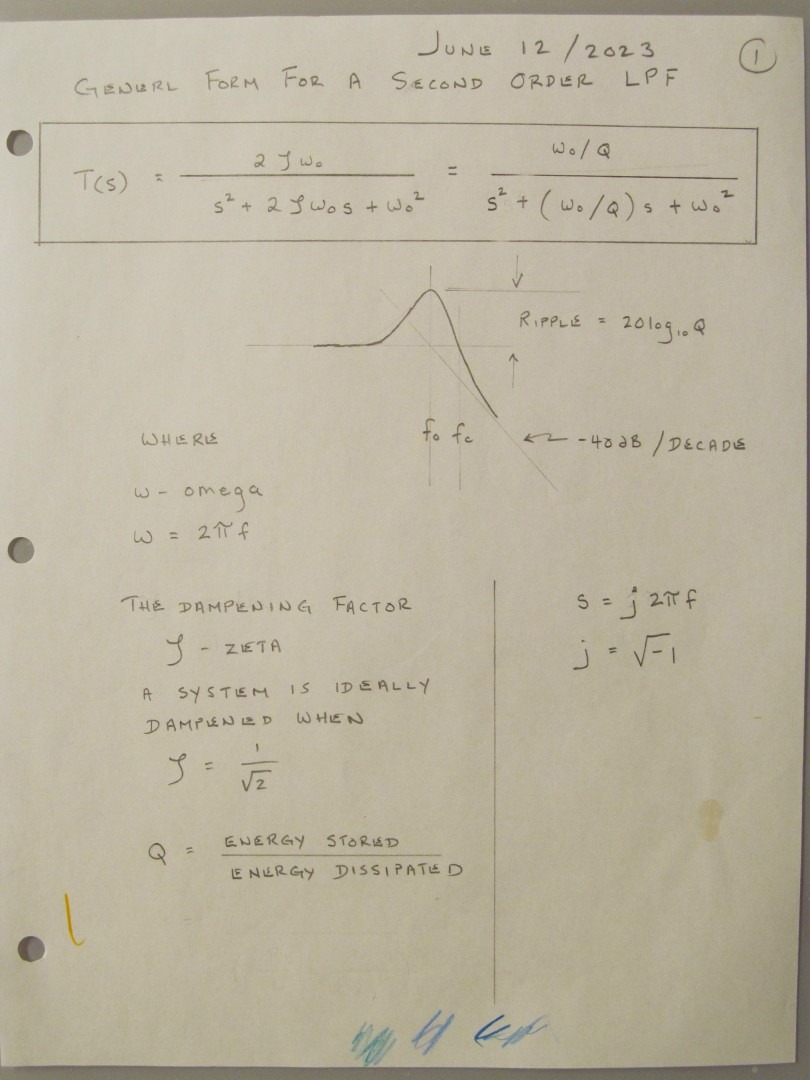 JUNE 12/2023
1
GENERL FORM FOR A SECOND ORDER LPF
T(s) = 2ζω₀ / (s² + 2ζω₀s + ω₀²) = ω₀/Q / (s² + (ω₀/Q)s + ω₀²)
RIPPLE = 20log₁₀Q
f₀ fc
← -40dB/DECADE
WHERE
ω - omega
ω = 2πf
THE DAMPENING FACTOR
ζ - ZETA
A SYSTEM IS IDEALLY
DAMPENED WHEN
ζ = 1/√2
Q = ENERGY STORED / ENERGY DISSIPATED
s = j2πf
j = √-1